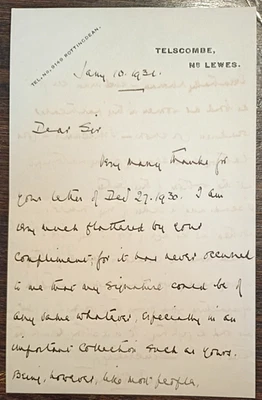 TEL. NO. 9148 ROTTINGDEAN.
TELSCOMBE,
NR LEWES.
Jany 10. 1931.
Dear Sir
Very many thanks for
your letter of Dec 27. 1930. I am
very much flattered by your
compliment, for it has never occurred
to me that my signature could be of
any value whatever, especially in an
important collection such as yours.
Being, however, like most people,